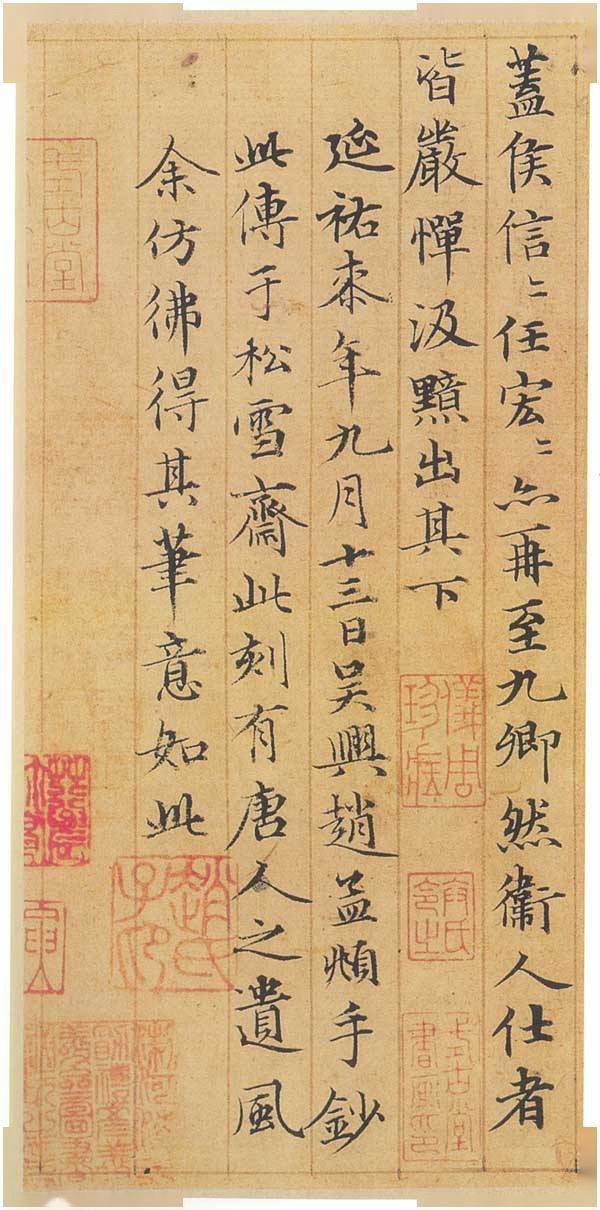 蓋侯信〻任宏〻亦再至九卿然衛人仕者
皆嚴憚汲黯出其下
延祐柒年九月十三日吳興趙孟頫手鈔
此傳于松雪齋此刻有唐人之遺風
余仿彿得其筆意如此
儀周珍藏
趙氏子昂